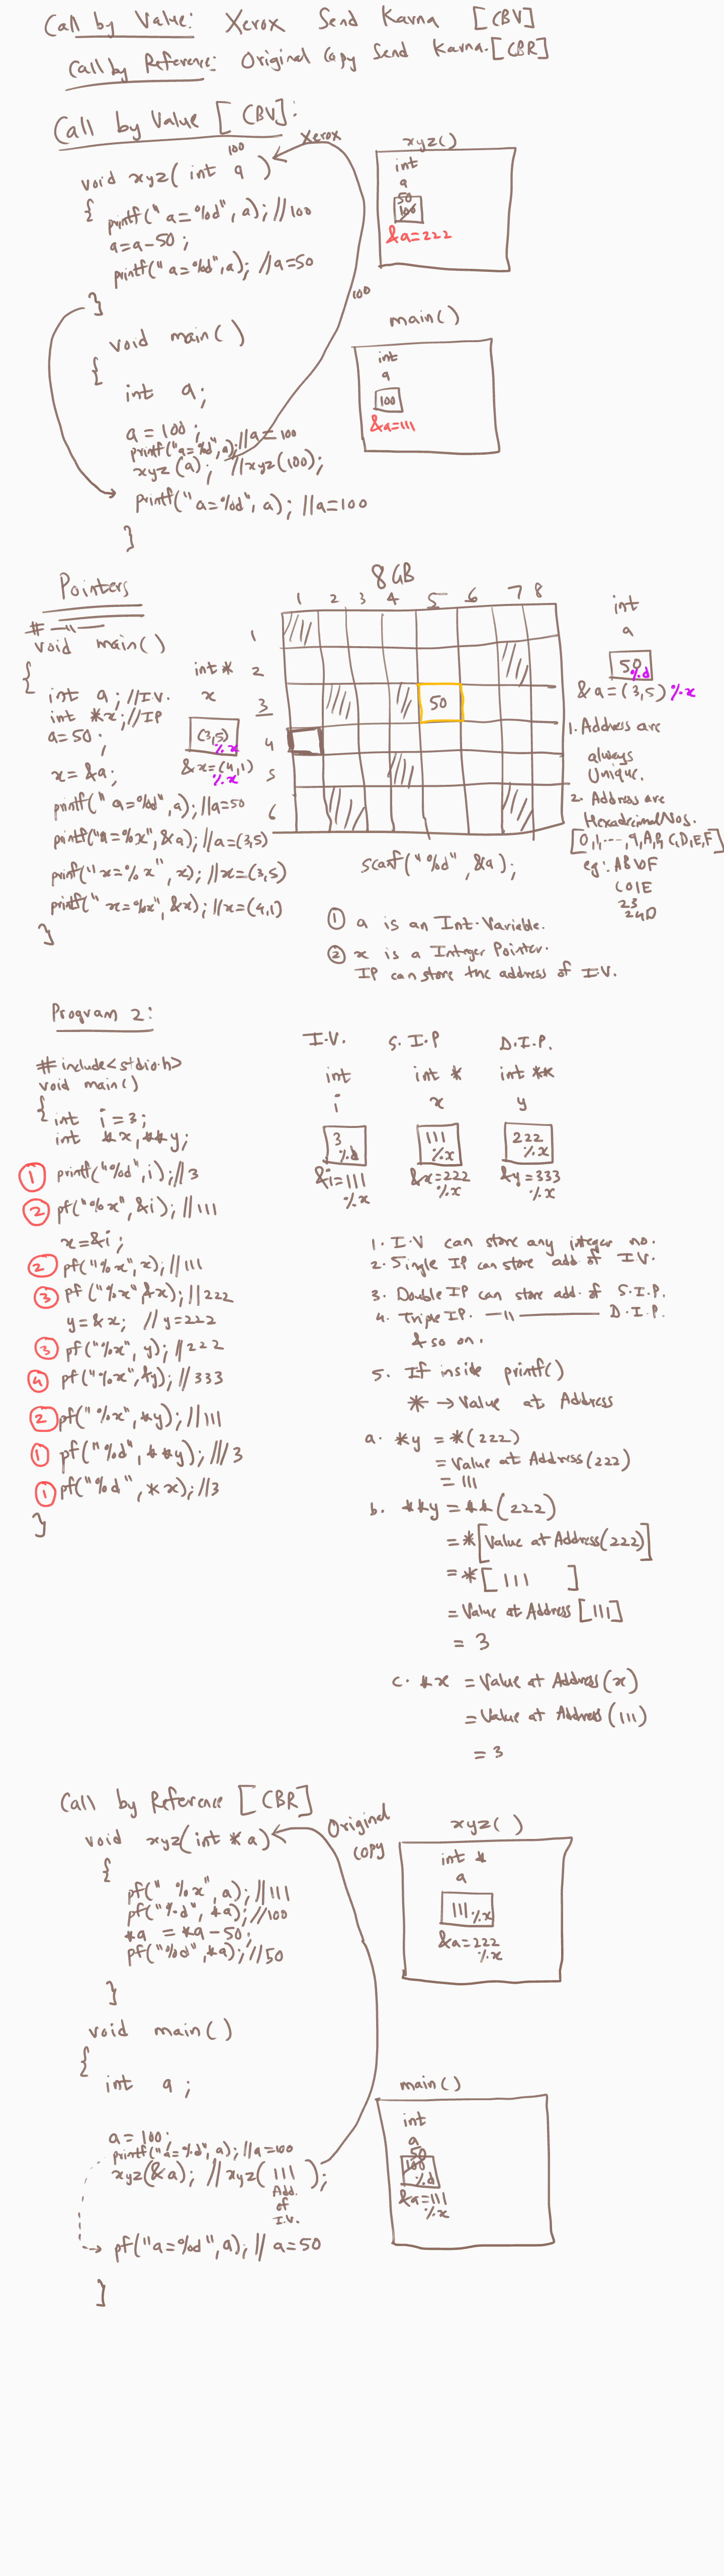 Call by Value: Xerox Send Karna [CBV]
Call by Reference: Original Copy Send Karna. [CBR]
Call by Value [CBV]:
Xerox
100
void xyz( int a )
{ printf(" a=%d", a); //100
a=a-50 ;
printf("a=%d",a); //a=50
}
100
void main( )
{
int a;
a = 100 ;
printf("a=%d",a); //a=100
xyz(a); //xyz(100);
printf("a=%d", a); //a=100
}
xyz()
int
a
50
100
&a=222
main( )
int
a
100
&a=111
Pointers
# —11—
void main( )
{
int a; //I.V.
int *x; //IP
a=50 ;
;
x = &a;
printf(" a=%d",a); //a=50
printf("a=%x",&a); //a=(3,5)
printf("x=%x", x); //x=(3,5)
printf(" x=%x", &x); //x=(4,1)
}
int*
x
(3,5)
%x
&x=(4,1)
%x
8 GB
1 2 3 4 5 6 7 8
1
2
3
4
5
6
50
scanf("%d", &a);
int
a
50
%d
&a=(3,5) %x
1. Address are
always
Unique.
2. Address are
Hexadecimal Nos.
[0,1,---,9,A,B,C,D,E,F]
eg:. AB0F
C01E
23
24D
① a is an Int-Variable.
② x is a Integer Pointer.
IP can store the address of I.V.
Program 2:
#include<stdio.h>
void main()
{ int i=3;
int *x,**y;
① printf("%d",i);//3
② pf("%x",&i); //111
x=&i;
② pf("%x",x); //111
③ pf("%x",&x); //222
y=&x; //y=222
③ pf("%x", y); //222
④ pf("%x",&y); //333
② pf("%x",*y); //111
① pf("%d",**y); ///3
① pf("%d",*x); //3
}
I.V. S.I.P D.I.P.
int int * int **
i x y
3 111 222
%d %x %x
&i=111 &x=222 &y=333
%x %x %x
1. I.V can store any integer no.
2. Single IP can store add of I.V.
3. Double IP can store add. of S.I.P.
4. Triple IP. —11———— D.I.P.
& so on.
5. If inside printf()
* → Value at Address
a. *y = *(222)
= Value at Address(222)
= 111
b. **y = **(222)
= *[Value at Address(222)]
= *[ 111 ]
= Value at Address [111]
= 3
c. *x = Value at Address(x)
= Value at Address(111)
= 3
Call by Reference [CBR]
Original
Copy
void xyz(int *a)
{
pf(" %x", a); //111
pf("%d", *a); //100
*a = *a-50;
pf("%d",*a); //50
}
void main( )
{
int a ;
a=100;
printf("a=%d", a); //a=100
xyz(&a); //xyz( 111 );
Add.
of
I.V.
pf("a=%d",a); // a=50
}
xyz( )
int *
a
111 %x
&a=222
%x
main()
int
a
50
100
%d
&a=111
%x